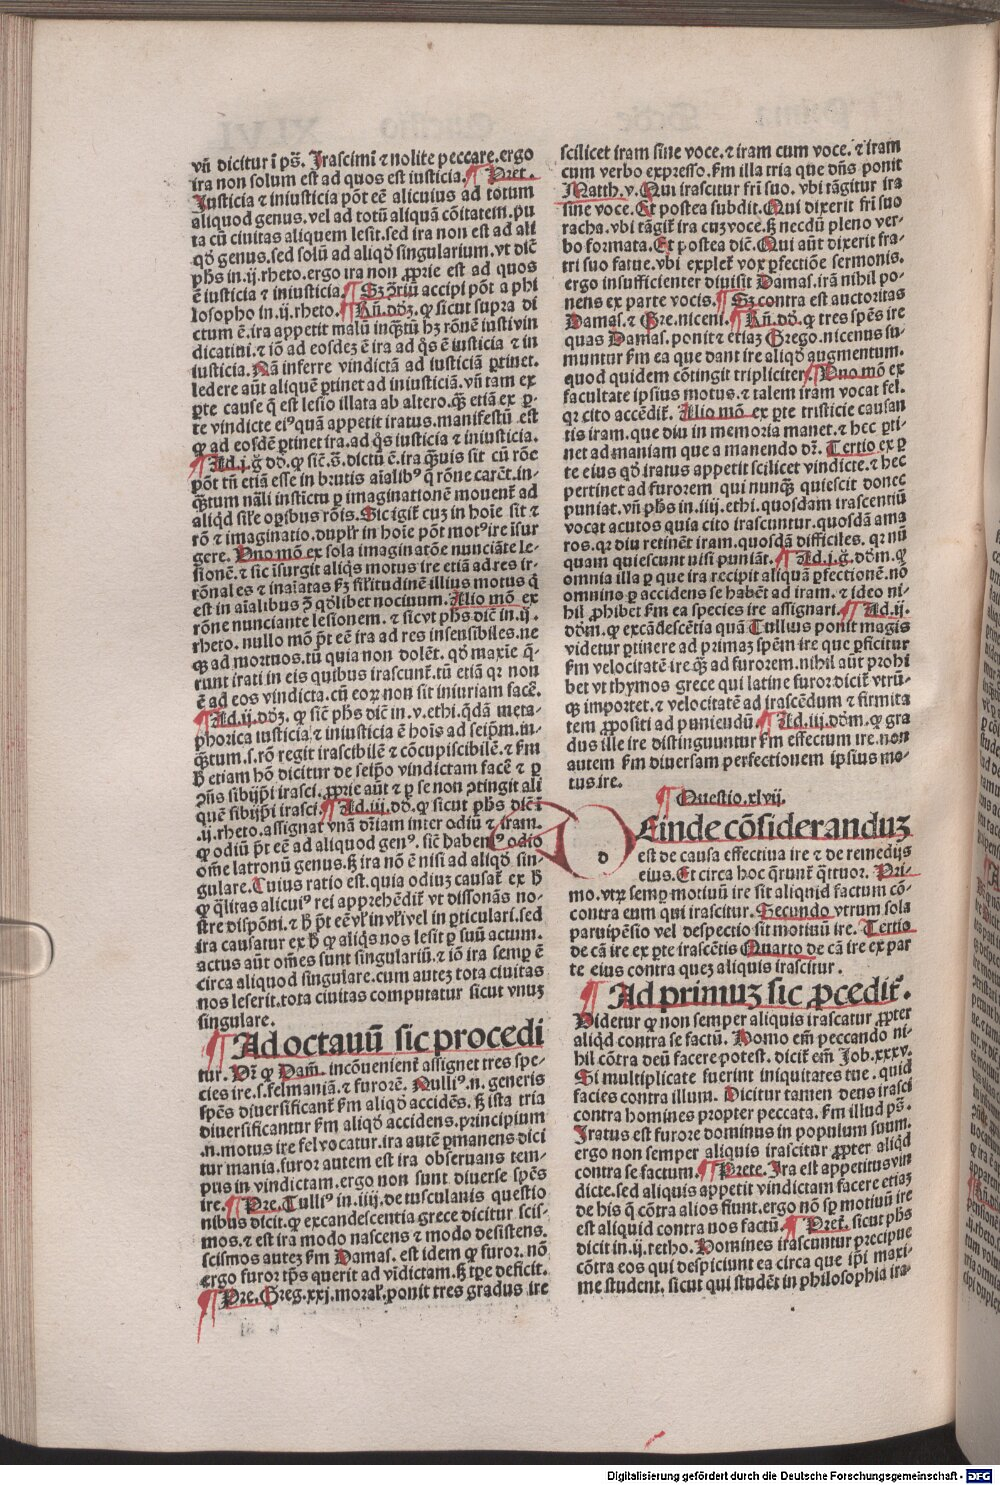 vñ dicitur ĩ ps̃. Irascimĩ ⁊ nolite peccare.ergo
ira non solum est ad quos est iusticia. ¶ Pret.
Iusticia ⁊ iniusticia põt eẽ alicuius ad totum
aliquod genus. vel ad totũ aliquã cõitatem.pu
ta cũ ciuitas aliquem lesit.sed ira non est ad ali
qđ genus.sed solũ ad aliqđ singularium.vt dicẽ
phs in.ij.rheto.ergo ira non ꝓprie est ad quos
ẽ iusticia ⁊ iniusticia. ¶ Sꝫ ꝯriũ accipi põt a phi
losopho in.ij.rheto. ¶ Rñ.dđꝫ.ꝙ sicut supra di
ctum ẽ.ira appetit malũ inqꝫtũ hꝫ rõnẽ iusti vin
dicatiui.⁊ iõ ad eosdeꝫ ẽ ira ad q̃s ẽ iusticia ⁊ in
iusticia. Nã inferre vindictã ad iusticiã ꝑtinet.
ledere aũt aliquẽ ꝑtinet ad iniusticiã.vñ tam ex
ꝑte cause q̃ est lesio illata ab altero.qꝫ etiã ex ꝑ-
te vindicte eiꝰ quã appetit iratus.manifestũ est
ꝙ ad eosdẽ ꝑtinet ira.ad q̃s iusticia ⁊ iniusticia.
¶ Ad.i.g̃ dđ.ꝙ sicẽ.s̃.dictũ ẽ.ira qꝫuis sit cũ rõe
põt tñ etiã esse in brutis aĩalibꝰ q̃ rõne carẽt.in-
qꝫtum nãli instictu ꝑ imaginationẽ mouent̃ ad
aliqđ sil̃e oꝑibus rõis. Sic igit̃ cuꝫ in hoĩe sit ⁊
rõ ⁊ imaginatio.dupl̃r in hoĩe põt motꝰ ire ĩsur
gere. Uno mõ ex sola imaginatõe nunciãte le-
sionẽ.⁊ sic ĩsurgit aliq̃s motus ire etiã ad res ir-
rõnales ⁊ inaĩatas ẜm sil̃itudinẽ illius motus q̃
est in aĩalibus ꝯ̃ qđlibet nociuum. Alio mõ ex
rõne nunciante lesionem.⁊ sicut phs dicẽ in.ij.
rheto. nullo mõ põt eẽ ira ad res insensibiles.ne
qꝫ ad mortuos.tũ quia non dolẽt. qđ maxĩe q̃-
runt irati in eis quibus irascunt̃.tũ etiã qꝛ non
ẽ ad eos vindicta.cũ eoꝝ non sit iniuriam facẽ.
¶ Ad.ij.dđꝫ.ꝙ sicẽ phs dicẽ in.v.ethi.q̃dã meta-
phorica iusticia ⁊ iniusticia ẽ hoĩs ad seip̃m.in-
qꝫtum.s.rõ regit irascibilẽ ⁊ cõcupiscibilẽ.⁊ ẜm
ħ etiam hõ dicitur de seip̃o vindictam facẽ ⁊ ꝑ
ꝯñs sibijp̃i irasci. ꝓprie aũt ⁊ ꝑ se non ꝯtingit ali
quẽ sibijp̃i irasci. ¶ Ad.iii.dđ.ꝙ sicut phs dicẽ ĩ
.ij.rheto.assignat vnã dr̃iam inter odiũ ⁊ iram.
ꝙ odiũ põt eẽ ad aliquod genꝰ. sicẽ habenꝰ odio
om̃e latronũ genus.sꝫ ira nõ ẽ nisi ad aliqđ sin-
gulare. Cuius ratio est.quia odiuꝫ causat̃ ex ħ
ꝙ q̃litas alicuiꝰ rei apprehẽdit̃ vt dissonãs no-
stre dispõni.⁊ ħ põt eẽ vl̃ in vl̃i vel in ꝑticulari.sed
ira causatur ex ħ ꝙ aliq̃s nos lesit ꝑ suũ actum.
actus aũt om̃es sunt singulariũ.⁊ iõ ira semꝑ ẽ
circa aliquod singulare.cum auteꝫ tota ciuitas
nos leserit.tota ciuitas computatur sicut vnuꝫ
singulare.
¶ Ad octauũ sic procedi
tur. Vr̃ ꝙ Dam̃. incõuenient̃ assignet tres spe-
cies ire.s.fel maniã.⁊ furorẽ. Nulliꝰ.n. generis
sp̃es diuersificant̃ ẜm aliqđ accidẽs. sꝫ ista tria
diuersificantur ẜm aliqđ accidens.principium
.n.motus ire fel vocatur.ira autẽ ꝑmanens dici
tur mania.furor autem est ira obseruans tem-
pus in vindictam.ergo non sunt diuerse sp̃es
ire. ¶ Pre. Tulliꝰ in.iiij.de tusculanis questio
nibus dicit.ꝙ excandescentia grece dicitur scis-
mos.⁊ est ira modo nascens ⁊ modo desistens.
scismos auteꝫ ẜm Damas. est idem ꝙ furor. nõ
ergo furor tp̃s querit ad vĩdictam.sꝫ tp̃e deficit.
¶ Pre. Greg.xxj.moral̃.ponit tres gradus ire
scilicet iram sine voce.⁊ iram cum voce. ⁊ iram
cum verbo expresso.ẜm illa tria que dñs ponit
Matth.v. Qui irascitur fr̃i suo. vbi tãgitur ira
sine voce. Et postea subdit. Qui dixerit fr̃i suo
racha.vbi tãgit̃ ira cuꝫ voce.sꝫ necdũ pleno ver-
bo formata. Et postea dicẽ. Qui aũt dixerit fra-
tri suo fatue.vbi explet̃ vox ꝑfectiõe sermonis.
ergo insufficienter diuisit Damas.irã nihil po-
nens ex parte vocis. ¶ Sꝫ contra est auctoritas
Damas.⁊ Gre.niceni. ¶ Rñ.dđ.ꝙ tres sp̃es ire
quas Damas.ponit ⁊ etiaꝫ Grego.nicenus su-
muntur ẜm ea que dant ire aliqđ augmentum.
quod quidem cõtingit tripliciter. ¶ Uno mõ ex
facultate ipsius motus.⁊ talem iram vocat fel.
qꝛ cito accẽdit̃. Alio mõ ex ꝑte tristicie causan
tis iram.que diu in memoria manet.⁊ hec ꝑti-
net ad maniam que a manendo dr̃. Tertio ex ꝑ
te eius qđ iratus appetit scilicet vindicte.⁊ hec
pertinet ad furorem qui nunqꝫ quiescit donec
puniat.vñ phs in.iiij.ethi.quosdam irascentiũ
vocat acutos quia cito irascuntur.quosdã ama
ros.qꝛ diu retinẽt iram.quosdã difficiles. qꝛ nũ
quam quiescunt nisi puniãt. ¶ Ad.i.g̃.dđm.ꝙ
omnia illa ꝑ que ira recipit aliquã ꝑfectionẽ.nõ
omnino ꝑ accidens se habẽt ad iram.⁊ ideo ni-
hil ꝓhibet ẜm ea species ire assignari. ¶ Ad.ij.
dđm.ꝙ excãdescẽtia quã Tullius ponit magis
videtur ꝑtinere ad primaꝫ sp̃em ire que ꝑficitur
ẜm velocitatẽ ire qꝫ ad furorem.nihil aũt prohi
bet vt thymos grece qui latine furor dicit̃ vtrũ-
qꝫ importet.⁊ velocitatẽ ad irascẽdum ⁊ firmita
tem ꝓpositi ad puniendũ. ¶ Ad.iii.dđm.ꝙ gra
dus ille ire distinguuntur ẜm effectum ire.non
autem ẜm diuersam perfectionem ipsius mo-
tus ire.
¶ Questio.xlvij.
d Einde cõsideranduꝫ
est de causa effectiua ire ⁊ de remedijs
eius. Et circa hoc q̃runt̃ q̃ttuor. Pri-
mo.vtrꝝ semꝑ motiuũ ire sit aliquid factum cõ-
contra eum qui irascitur. Secundo vtrum sola
paruipẽsio vel despectio sit motiuũ ire. Tertio
de cã ire ex ꝑte irascẽtis Quarto de cã ire ex par
te eius contra queꝫ aliquis irascitur.
¶ Ad primuꝫ sic ꝓcedit̃.
Videtur ꝙ non semper aliquis irascatur ꝓpter
aliqđ contra se factũ. Homo em̃ peccando ni-
hil cõtra deũ facere potest. dicit̃ em̃ Job.xxxv.
Si multiplicate fuerint iniquitates tue . quid
facies contra illum. Dicitur tamen deus irasci
contra homines propter peccata. ẜm illud ps̃.
Iratus est furore dominus in populum suum.
ergo non semper aliquis irascitur ꝓpter aliqđ
contra se factum. ¶ Prete. Ira est appetitus vin
dicte.sed aliquis appetit vindictam facere etiaꝫ
de his q̃ cõtra alios fiunt.ergo nõ sꝑ motiuũ ire
est aliquid contra nos factũ. ¶ Pret̃. sicut phs
dicit in.ij.retho. Homines irascuntur precipue
cõtra eos qui despiciunt ea circa que ip̃i maxi-
me student. sicut qui studẽt in philosophia ira-
Digitalisierung gefördert durch die Deutsche Forschungsgemeinschaft - DFG